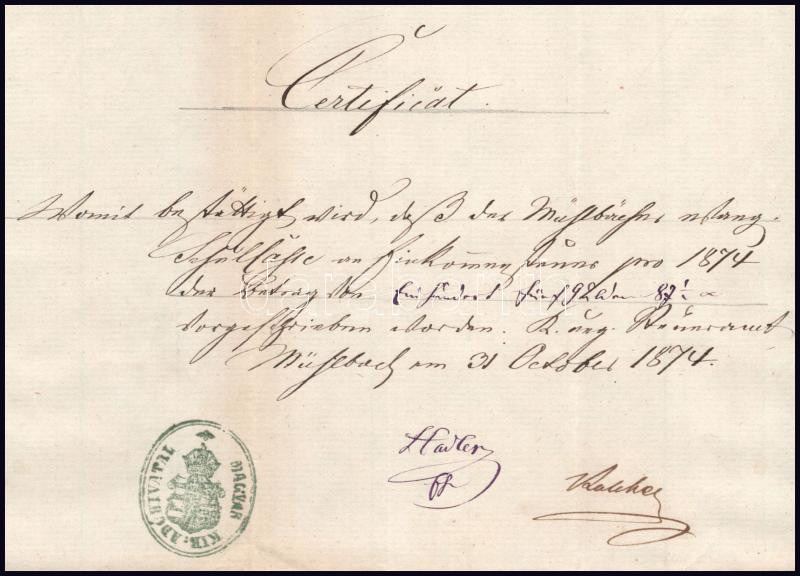 Certificat.
Womit bestättigt wird, daß der Mühlbacher evang.
Schulkasse an Einkommensteuer pro 1874
der Betrag von Ein hundert fünf Gulden 87
vorgeschrieben worden. K. ung. Steueramt
Mühlbach am 31 October 1874.
MAGYAR KIR. ADÓHIVATAL